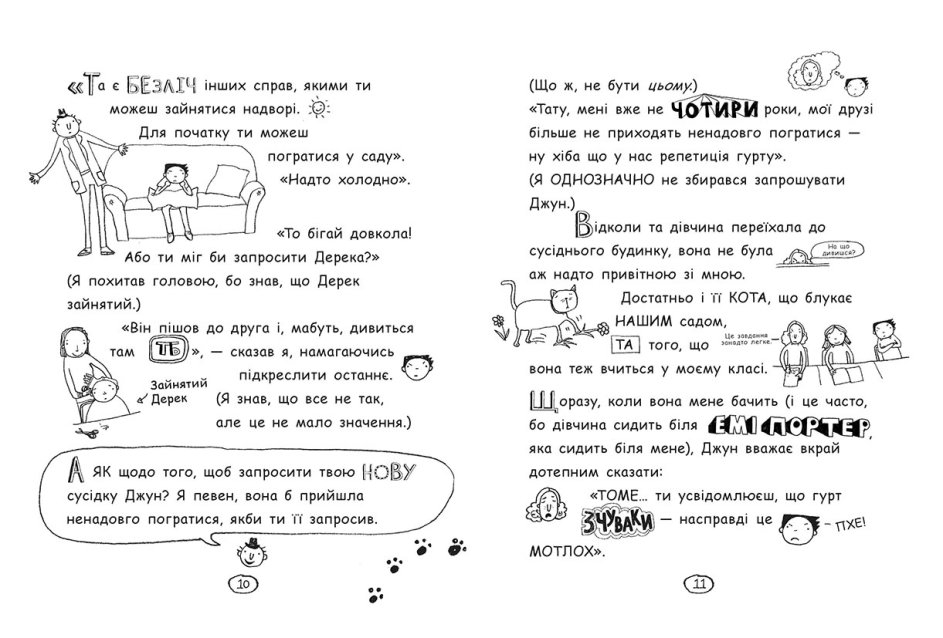 «Та є БЕЗЛІЧ інших справ, якими ти
можеш зайнятися надворі.
Для початку ти можеш
погратися у саду».
«Надто холодно».
«То бігай довкола!
Або ти міг би запросити Дерека?»
(Я похитав головою, бо знав, що Дерек
зайнятий.)
«Він пішов до друга і, мабуть, дивиться
там ТБ», — сказав я, намагаючись
підкреслити останнє.
Зайнятий
Дерек
(Я знав, що все не так,
але це не мало значення.)
А ЯК щодо того, щоб запросити твою НОВУ
сусідку Джун? Я певен, вона б прийшла
ненадовго погратися, якби ти її запросив.
10
(Що ж, не бути цьому.)
«Тату, мені вже не ЧОТИРИ роки, мої друзі
більше не приходять ненадовго погратися —
ну хіба що у нас репетиція гурту».
(Я ОДНОЗНАЧНО не збирався запрошувати
Джун.)
Відколи та дівчина переїхала до
сусіднього будинку, вона не була
аж надто привітною зі мною.
На що
дивишся?
Достатньо і її КОТА, що блукає
НАШИМ садом,
ТА того, що
Це завдання
занадто легке.
вона теж вчиться у моєму класі.
Щоразу, коли вона мене бачить (і це часто,
бо дівчина сидить біля ЕМІ ПОРТЕР,
яка сидить біля мене), Джун вважає вкрай
дотепним сказати:
«ТОМЕ... ти усвідомлюєш, що гурт
ЗЧУВАКИ — насправді це
– ПХЕ!
МОТЛОХ».
11